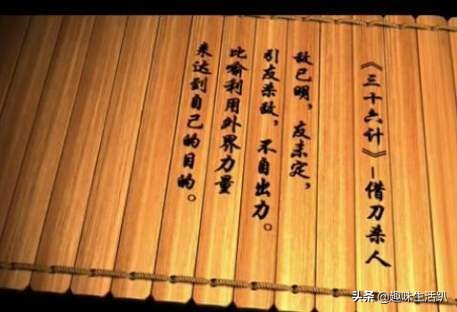 《三十六计》-借刀杀人
敌已明，友未定，
引友杀敌，不自出力。
比喻利用外界力量
来达到自己的目的。
头条 @趣味生活趴